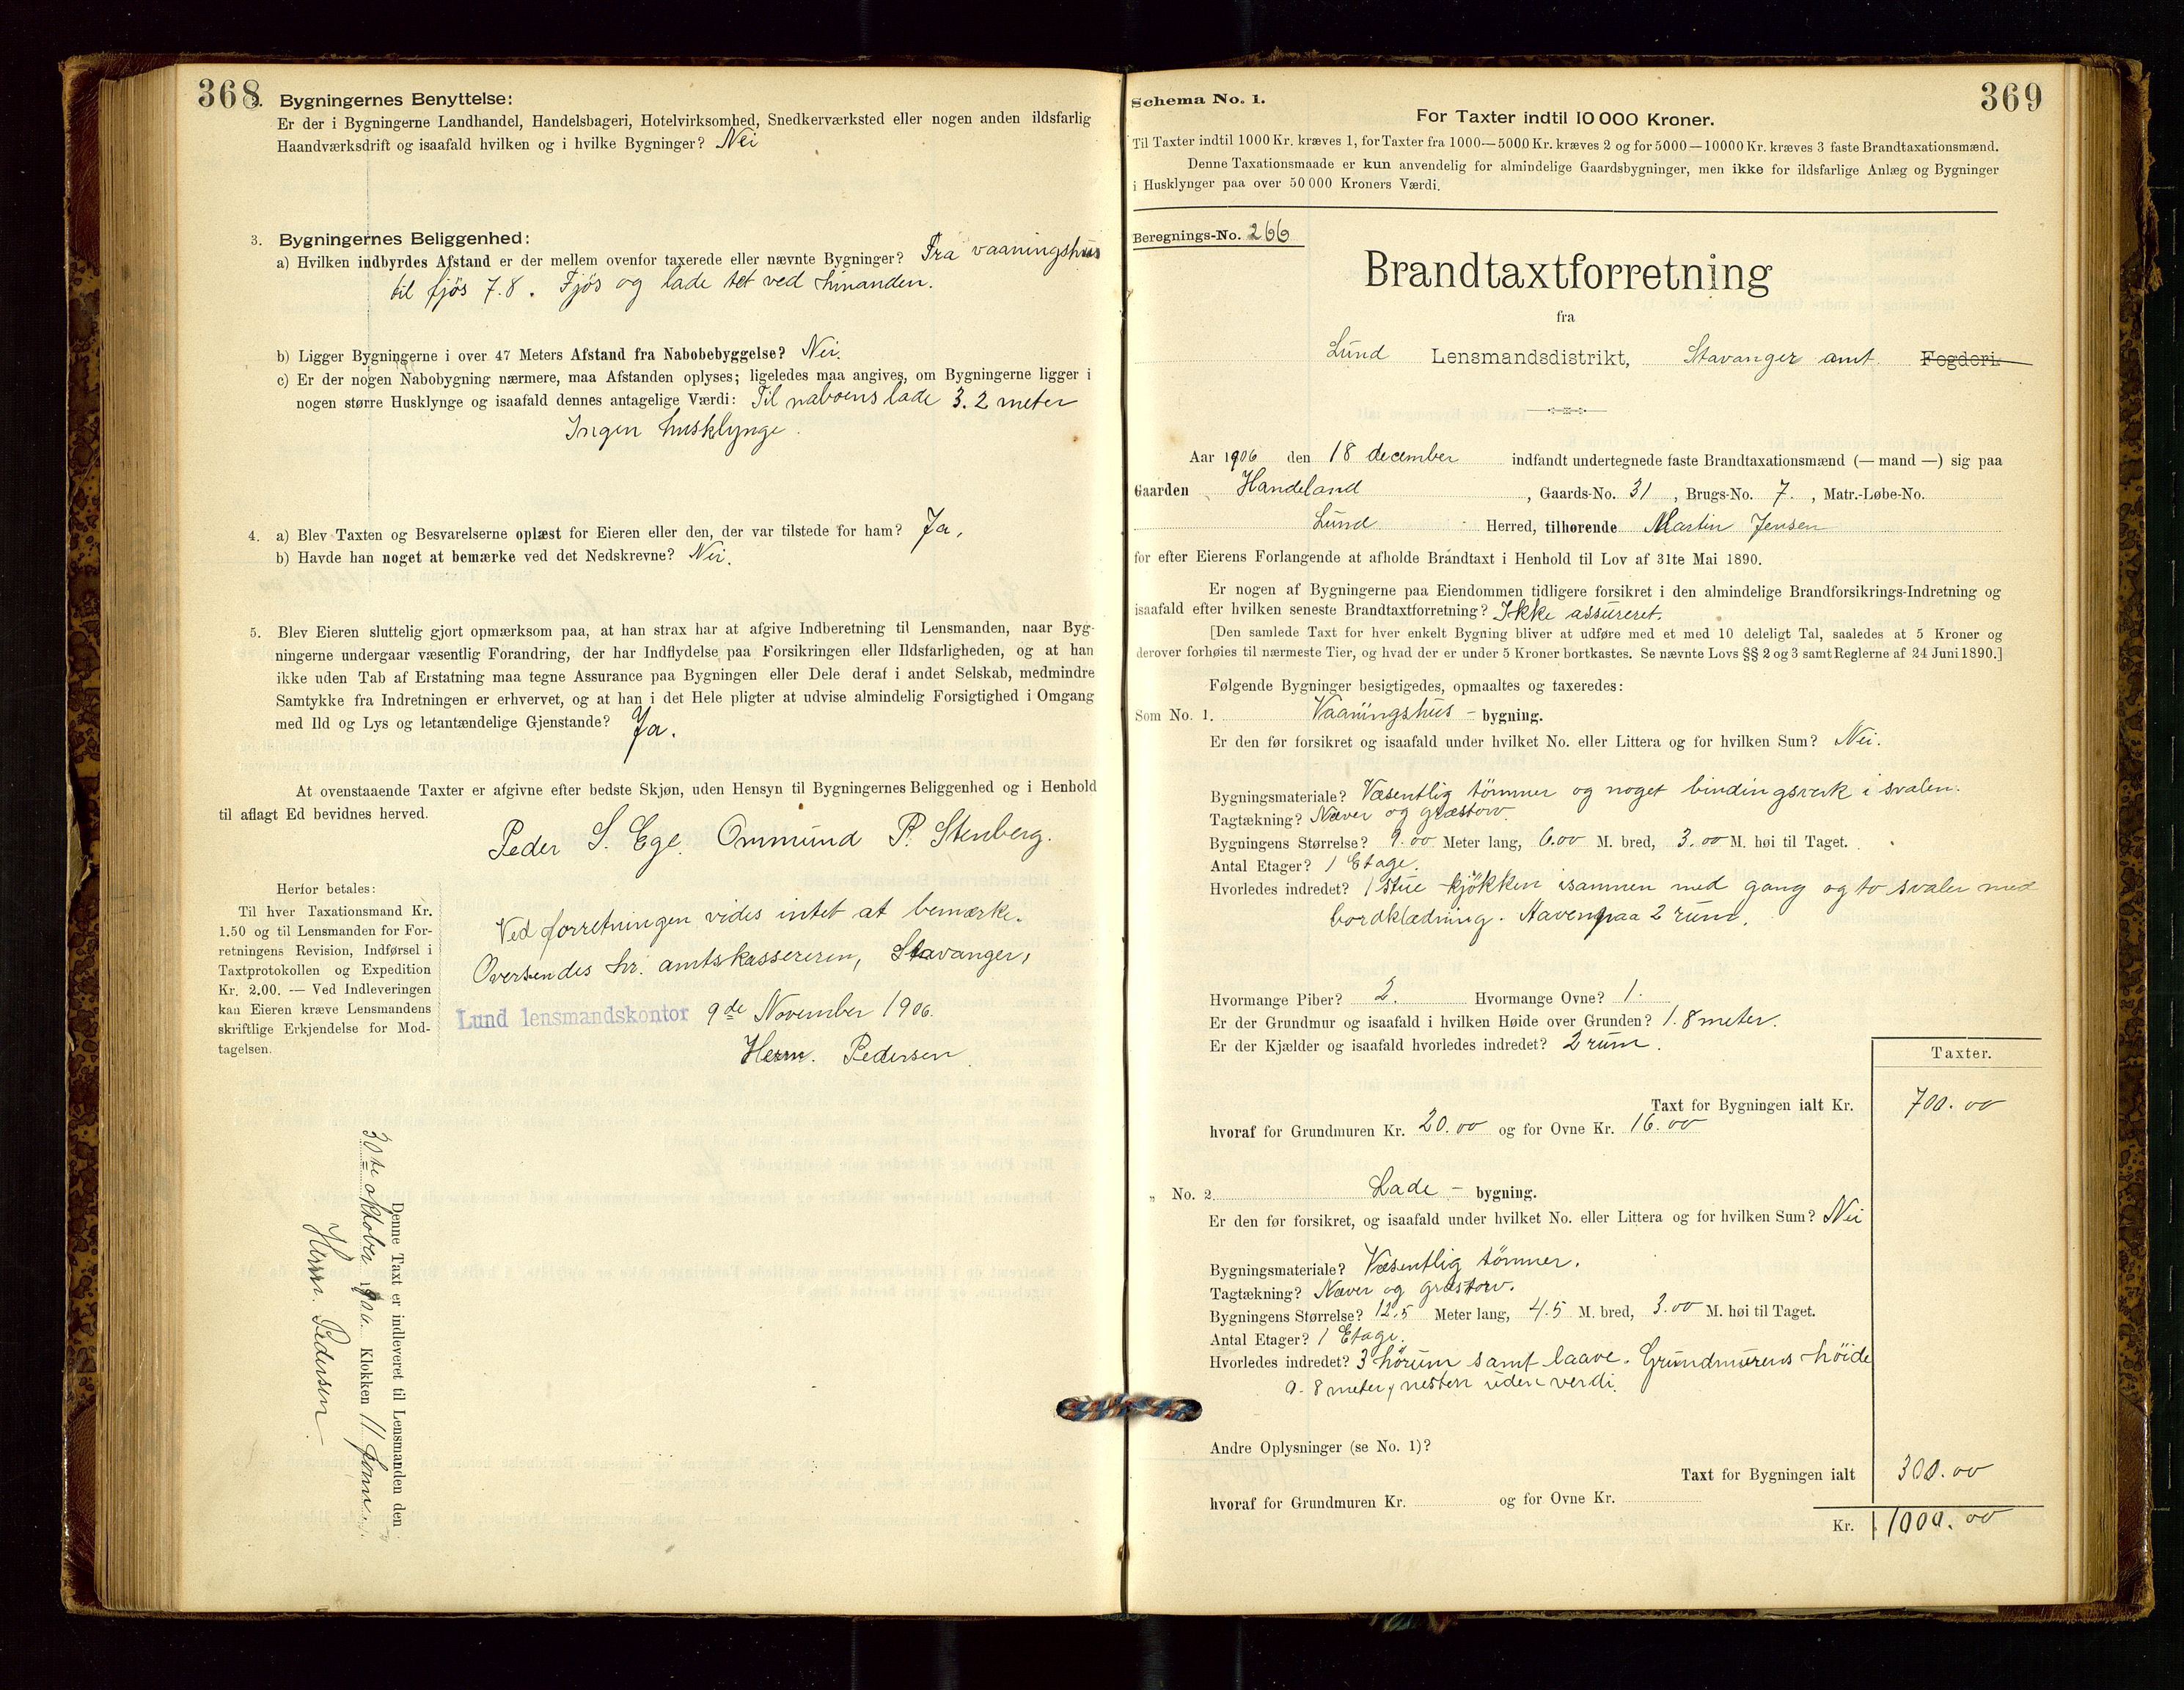 368
2. Bygningernes Benyttelse:
Er der i Bygningerne Landhandel, Handelsbageri, Hotelvirksomhed, Snedkerværksted eller nogen anden ildsfarlig
Haandværksdrift og isaafald hvilken og i hvilke Bygninger? Nei
3. Bygningernes Beliggenhed:
a) Hvilken indbyrdes Afstand er der mellem ovenfor taxerede eller nævnte Bygninger? Fra vaaningshus
til fjös 7.8. Fjös og lade tet ved hinanden.
b) Ligger Bygningerne i over 47 Meters Afstand fra Nabobebyggelse? Nei.
c) Er der nogen Nabobygning nærmere, maa Afstanden oplyses; ligeledes maa angives, om Bygningerne ligger i
nogen større Husklynge og isaafald dennes antagelige Værdi: Til naboens lade 3.2 meter
Ingen husklynge.
4. a) Blev Taxten og Besvarelserne oplæst for Eieren eller den, der var tilstede for ham? Ja,
b) Havde han noget at bemærke ved det Nedskrevne? Nei.
5. Blev Eieren sluttelig gjort opmærksom paa, at han strax har at afgive Indberetning til Lensmanden, naar Byg-
ningerne undergaar væsentlig Forandring, der har Indflydelse paa Forsikringen eller Ildsfarligheden, og at han
ikke uden Tab af Erstatning maa tegne Assurance paa Bygningen eller Dele deraf i andet Selskab, medmindre
Samtykke fra Indretningen er erhvervet, og at han i det Hele pligter at udvise almindelig Forsigtighed i Omgang
med Ild og Lys og letantændelige Gjenstande? Ja.
At ovenstaaende Taxter er afgivne efter bedste Skjøn, uden Hensyn til Bygningernes Beliggenhed og i Henhold
til aflagt Ed bevidnes herved.
Peder S. Ege. Ommund P. Stenberg.
Herfor betales:
Til hver Taxationsmand Kr.
1.50 og til Lensmanden for For-
retningens Revision, Indførsel i
Taxtprotokollen og Expedition
Kr. 2.00. — Ved Indleveringen
kan Eieren kræve Lensmandens
skriftlige Erkjendelse for Mod-
tagelsen.
Ved forretningen vides intet at bemærke.
Oversendes hr. amtskassereren, Stavanger,
Lund lensmandskontor 9de November 1906.
Herm. Pedersen.
Denne Taxt er indleveret til Lensmanden den
30te oktober 1906. Klokken 11 form.
Herm. Pedersen.
369
Schema No. 1.
For Taxter indtil 10 000 Kroner.
Til Taxter indtil 1000 Kr. kræves 1, for Taxter fra 1000—5000 Kr. kræves 2 og for 5000—10000 Kr. kræves 3 faste Brandtaxationsmænd.
Denne Taxationsmaade er kun anvendelig for almindelige Gaardsbygninger, men ikke for ildsfarlige Anlæg og Bygninger
i Husklynger paa over 50 000 Kroners Værdi.
Beregnings-No. 266
Brandtaxtforretning
fra
Lund Lensmandsdistrikt, Stavanger amt. Fogderi.
Aar 1906 den 18 december indfandt undertegnede faste Brandtaxationsmænd (— mand —) sig paa
Gaarden Handeland, Gaards-No. 31, Brugs-No. 7., Matr.-Løbe-No.
Lund Herred, tilhørende Martin Jensen
for efter Eierens Forlangende at afholde Brandtaxt i Henhold til Lov af 31te Mai 1890.
Er nogen af Bygningerne paa Eiendommen tidligere forsikret i den almindelige Brandforsikrings-Indretning og
isaafald efter hvilken seneste Brandtaxtforretning? Ikke assureret.
[Den samlede Taxt for hver enkelt Bygning bliver at udføre med et med 10 deleligt Tal, saaledes at 5 Kroner og
derover forhøies til nærmeste Tier, og hvad der er under 5 Kroner bortkastes. Se nævnte Lovs §§ 2 og 3 samt Reglerne af 24 Juni 1890.]
Følgende Bygninger besigtigedes, opmaaltes og taxeredes:
Som No. 1. Vaaningshus - bygning.
Er den før forsikret og isaafald under hvilket No. eller Littera og for hvilken Sum? Nei.
Bygningsmateriale? Væsentlig tömmer og noget bindingsverk i svalen.
Tagtækning? Næver og græstorv.
Bygningens Størrelse? 9.00 Meter lang, 6.00 M. bred, 3.00 M. høi til Taget.
Antal Etager? 1 Etage.
Hvorledes indredet? 1 stue kjökken isammen med gang og to svaler med
bordklædning. Havenpaa 2 rum.
Hvormange Piber? 2. Hvormange Ovne? 1.
Er der Grundmur og isaafald i hvilken Høide over Grunden? 1.8 meter.
Er der Kjælder og isaafald hvorledes indredet? 2 rum.
Taxter.
Taxt for Bygningen ialt Kr. 700.00
hvoraf for Grundmuren Kr. 20.00 og for Ovne Kr. 16.00
„ No. 2. Lade - bygning.
Er den før forsikret, og isaafald under hvilket No. eller Littera og for hvilken Sum? Nei
Bygningsmateriale? Væsentlig tömmer.
Tagtækning? Næver og græstorv.
Bygningens Størrelse? 12.5 Meter lang, 4.5 M. bred, 3.00 M. høi til Taget.
Antal Etager? 1 Etage.
Hvorledes indredet? 3 hörum samt laave. Grundmurens höide
0.8 meter, nesten uden verdi.
Andre Oplysninger (se No. 1)?
Taxt for Bygningen ialt 300.00
hvoraf for Grundmuren Kr. og for Ovne Kr.
Kr. 1000.00